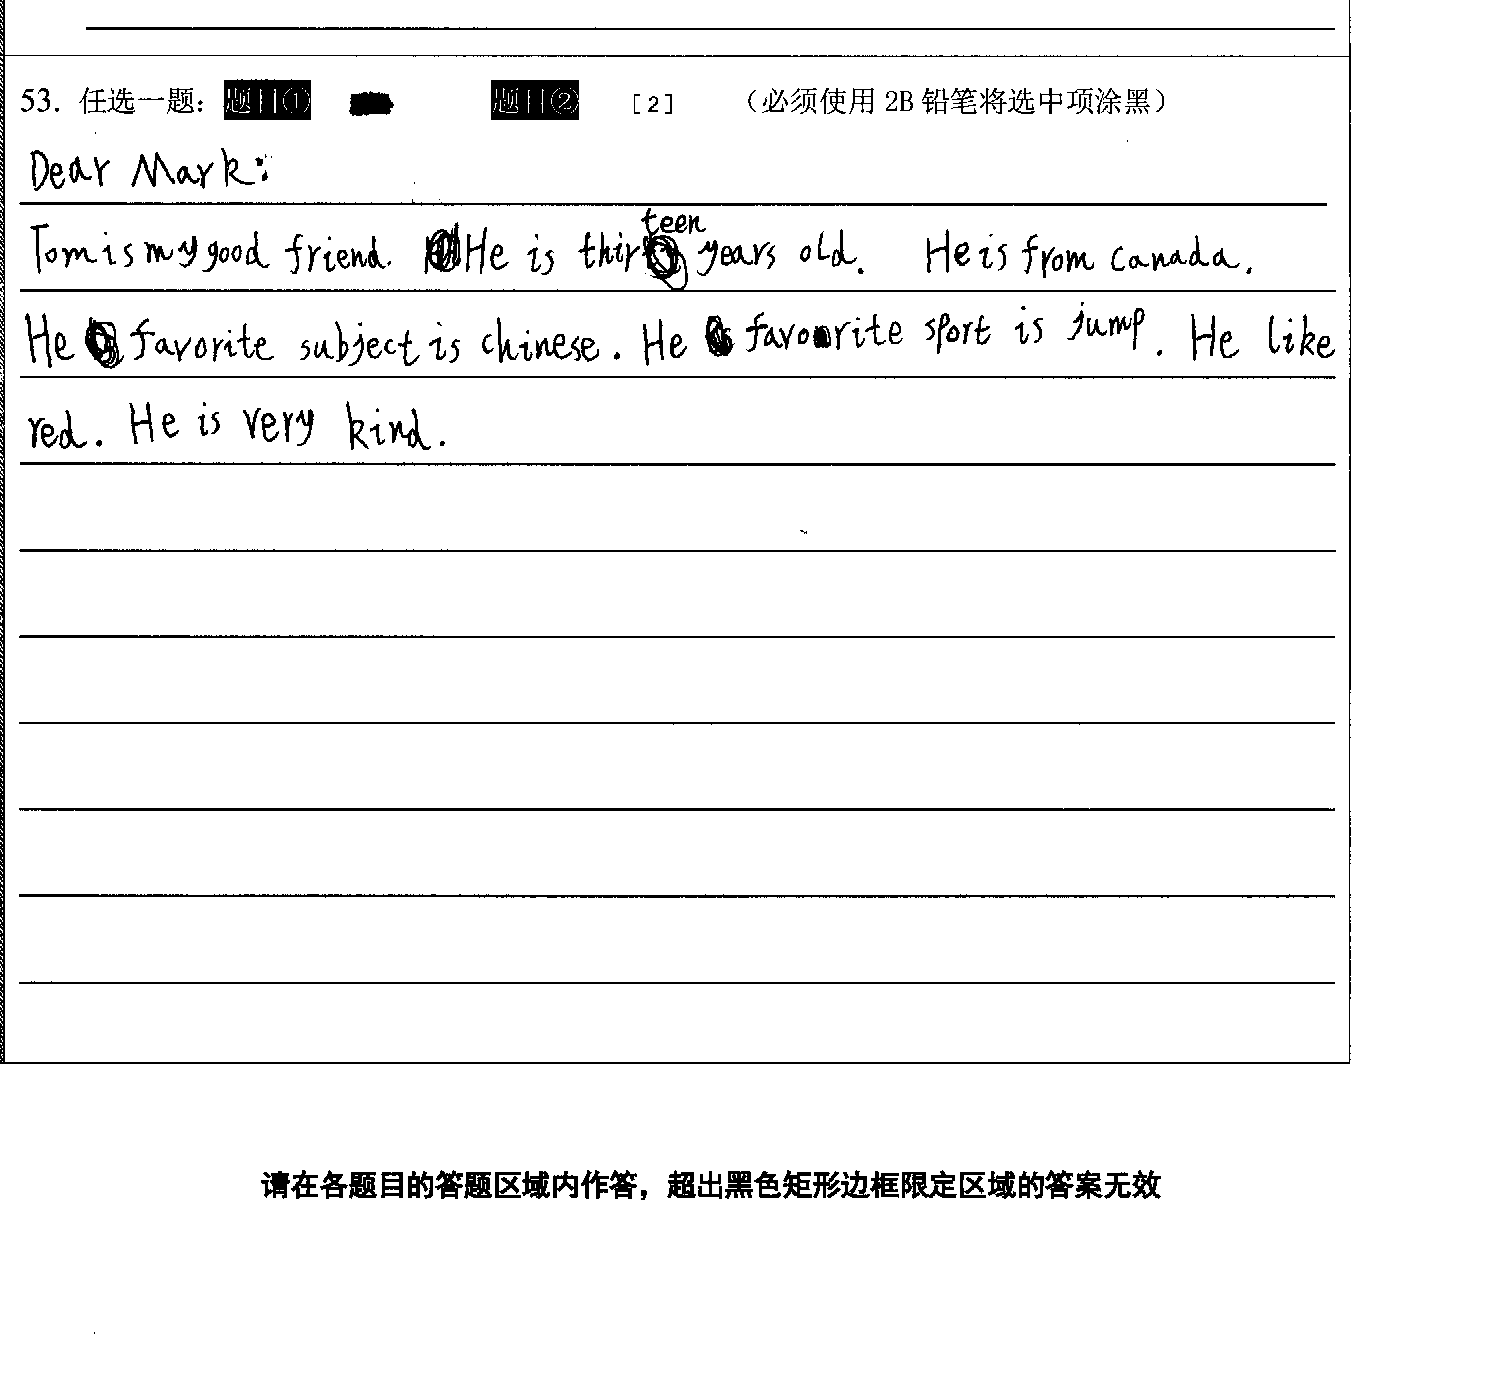 53. 任选一题: 题目① 题目② [2] (必须使用 2B 铅笔将选中项涂黑)
Dear Mark:
Tom is my good friend. He is thirteen years old. He is from canada.
He favorite subject is chinese. He favorite sport is jump. He like
red. He is very kind.
请在各题目的答题区域内作答，超出黑色矩形边框限定区域的答案无效